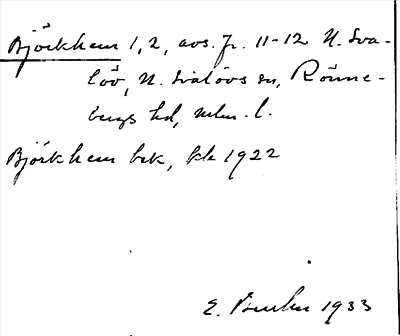 Björkhem 1, 2, avs. fr. 11-12 N. Sva-
löv, N. Svalövs sn, Rönne-
bergs hd, mlm. l.
Björkhem bek, kk 1922
E. 1933